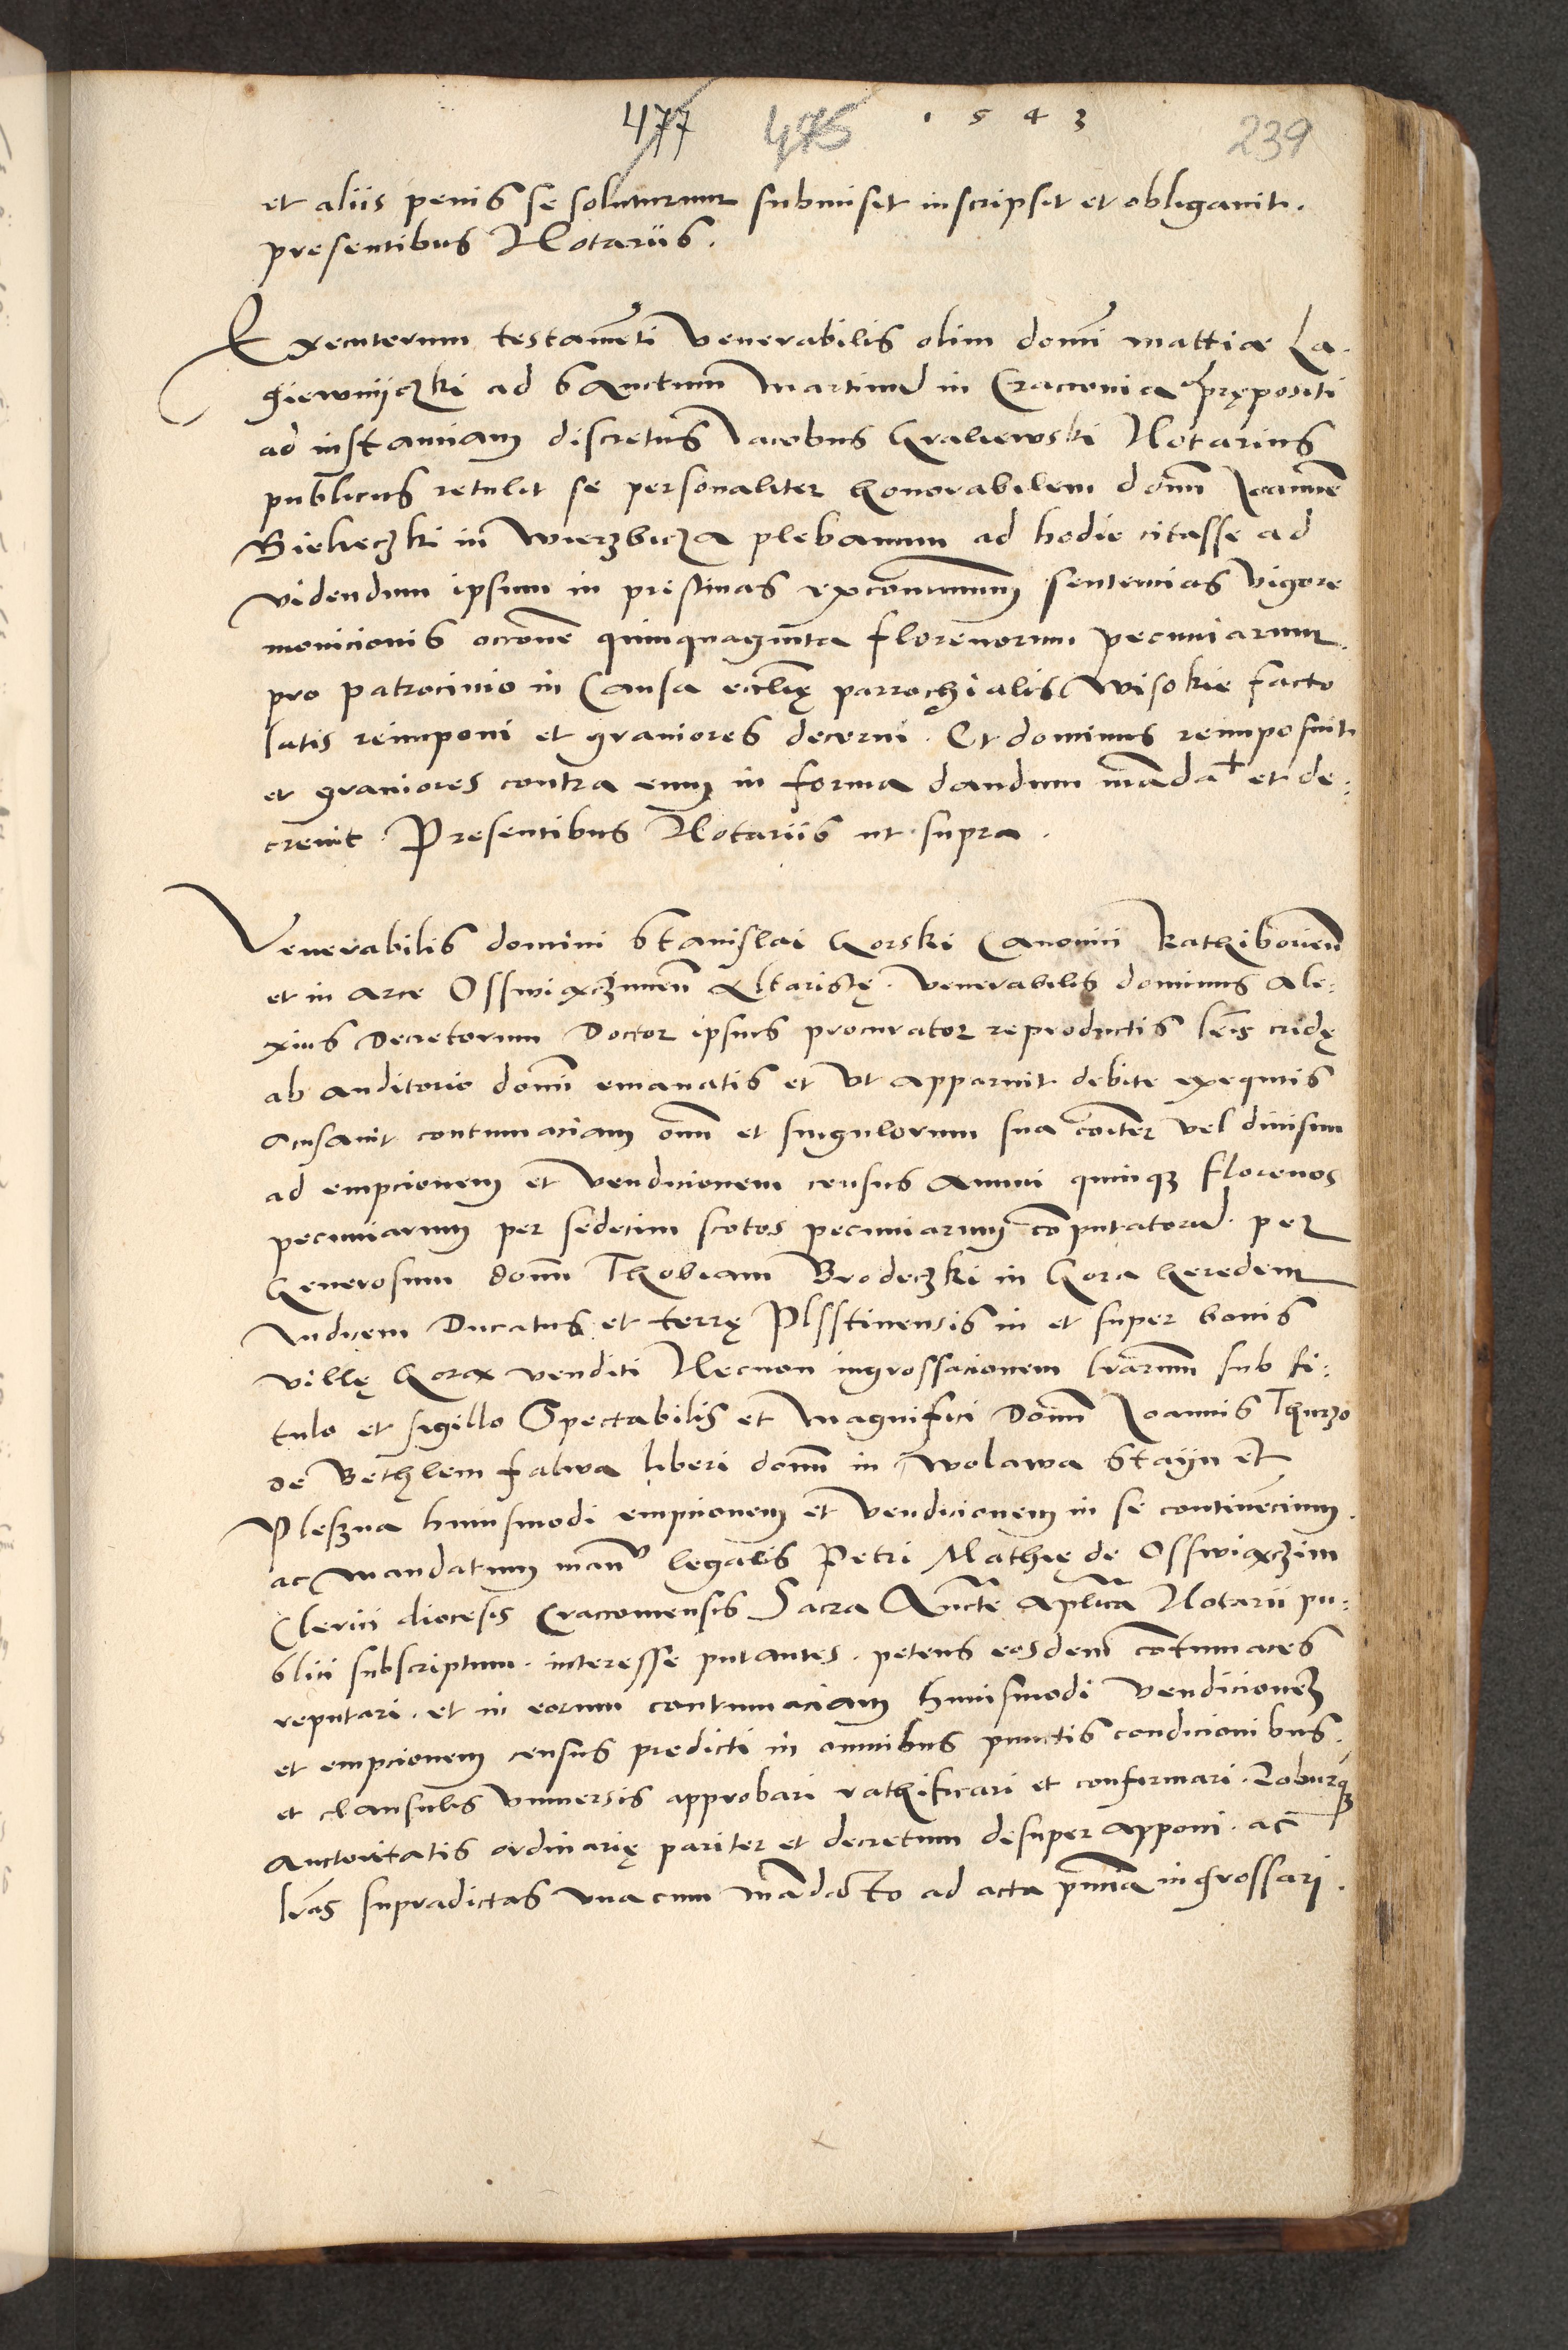 477 475 1543 239
et aliis penis se soluturum submisit inscripsit et obligavit.
presentibus Notariis.
Executorum testamēti Venerabilis olim domī mattiæ La-
giewnijczki ad Sanctum Martinū in Cracovia prępositi
ad instantiam discretus Jacobus Gralewski Notarius
publicus retulit se personaliter honorabilem domn Joannē
Bieleczki in Wierzbicza plebanum ad hodie citasse ad
videndum ipsum in pristinas excommun sentencias vigore
monicionis occone quinquaginta florenorum pecuniarum
pro patrocinio in Causa ecclię parrochialis Wisokie facto
latis reimponi et graviores decerni. Et dominus reimposuit
et graviores contra eum in forma dandum māda+ et de:
crevit. Presentibus Notariis ut supra.
Venerabilis domini Stanislai Gorski Canonici Rathiborien
et in arce Osswiączimen Altaristę. Venerabilis dominus Ale:
xius Decretorum Doctor ipsius procurator reproductis lris cridę
ab auditorio domi emanatis et ut apparuit debite exequtis
Acusavit contumaciam omn et singulorum sua coiter vel divisim
ad empcionem et vendicionem census annui quinqz florenos
pecuniarum per sedecim scotos pecuniarum computatorū per
Generosum domn Thobiam Brodeczki in Gora heredem
Iudicem Ducatus et terrę Plsstinensis in et super bonis
villę Gora venditi Necnon ingrossacionem lrarum sub ti:
tulo et sigillo Spectabilis et Magnifici Domi Joannis Thurzo
de Bethlem falwa liberi domi in Wolawa Stayn et
Pleszna huiusmodi empcionem et vendicionem in se continēcium.
ac mandatum manu legalis Petri Mathię de Osswiączim
Clerici diocesis Cracoviensis Sacra Aucte Aplica Notarii pu:
blici subscriptum. interesse putantes. petens eosdem contumaces
reputari. et in eorum contumaciam huiusmodi vendicionē
et empcionem census predicti in omnibus punctis condicionibus.
et clausulis universis approbari rathificari et confirmari. Roburqz
auctoritatis ordinarię pariter et decretum desuper apponi. ac
lras supradictas una cum mādato ad acta pntia ingrossari.